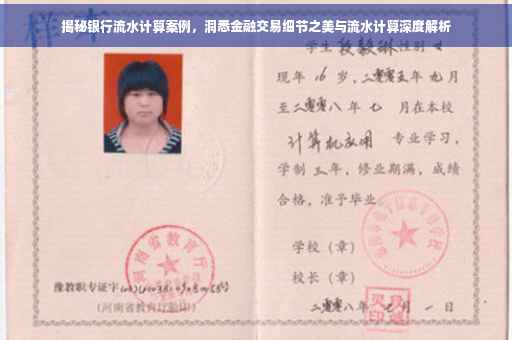 揭秘银行流水计算案例，洞悉金融交易细节之美与流水计算深度解析
样本
学生段毅琳性别女
现年16岁，二零零五年九月
至二零零八年七月在本校
计算机应用 专业学习，
学制三年，修业期满，成绩
合格，准予毕业。
学校（章）
校长（章）
河南省教育厅
豫教职专证字
（河南省教育厅验印）
二零零八年七月一日